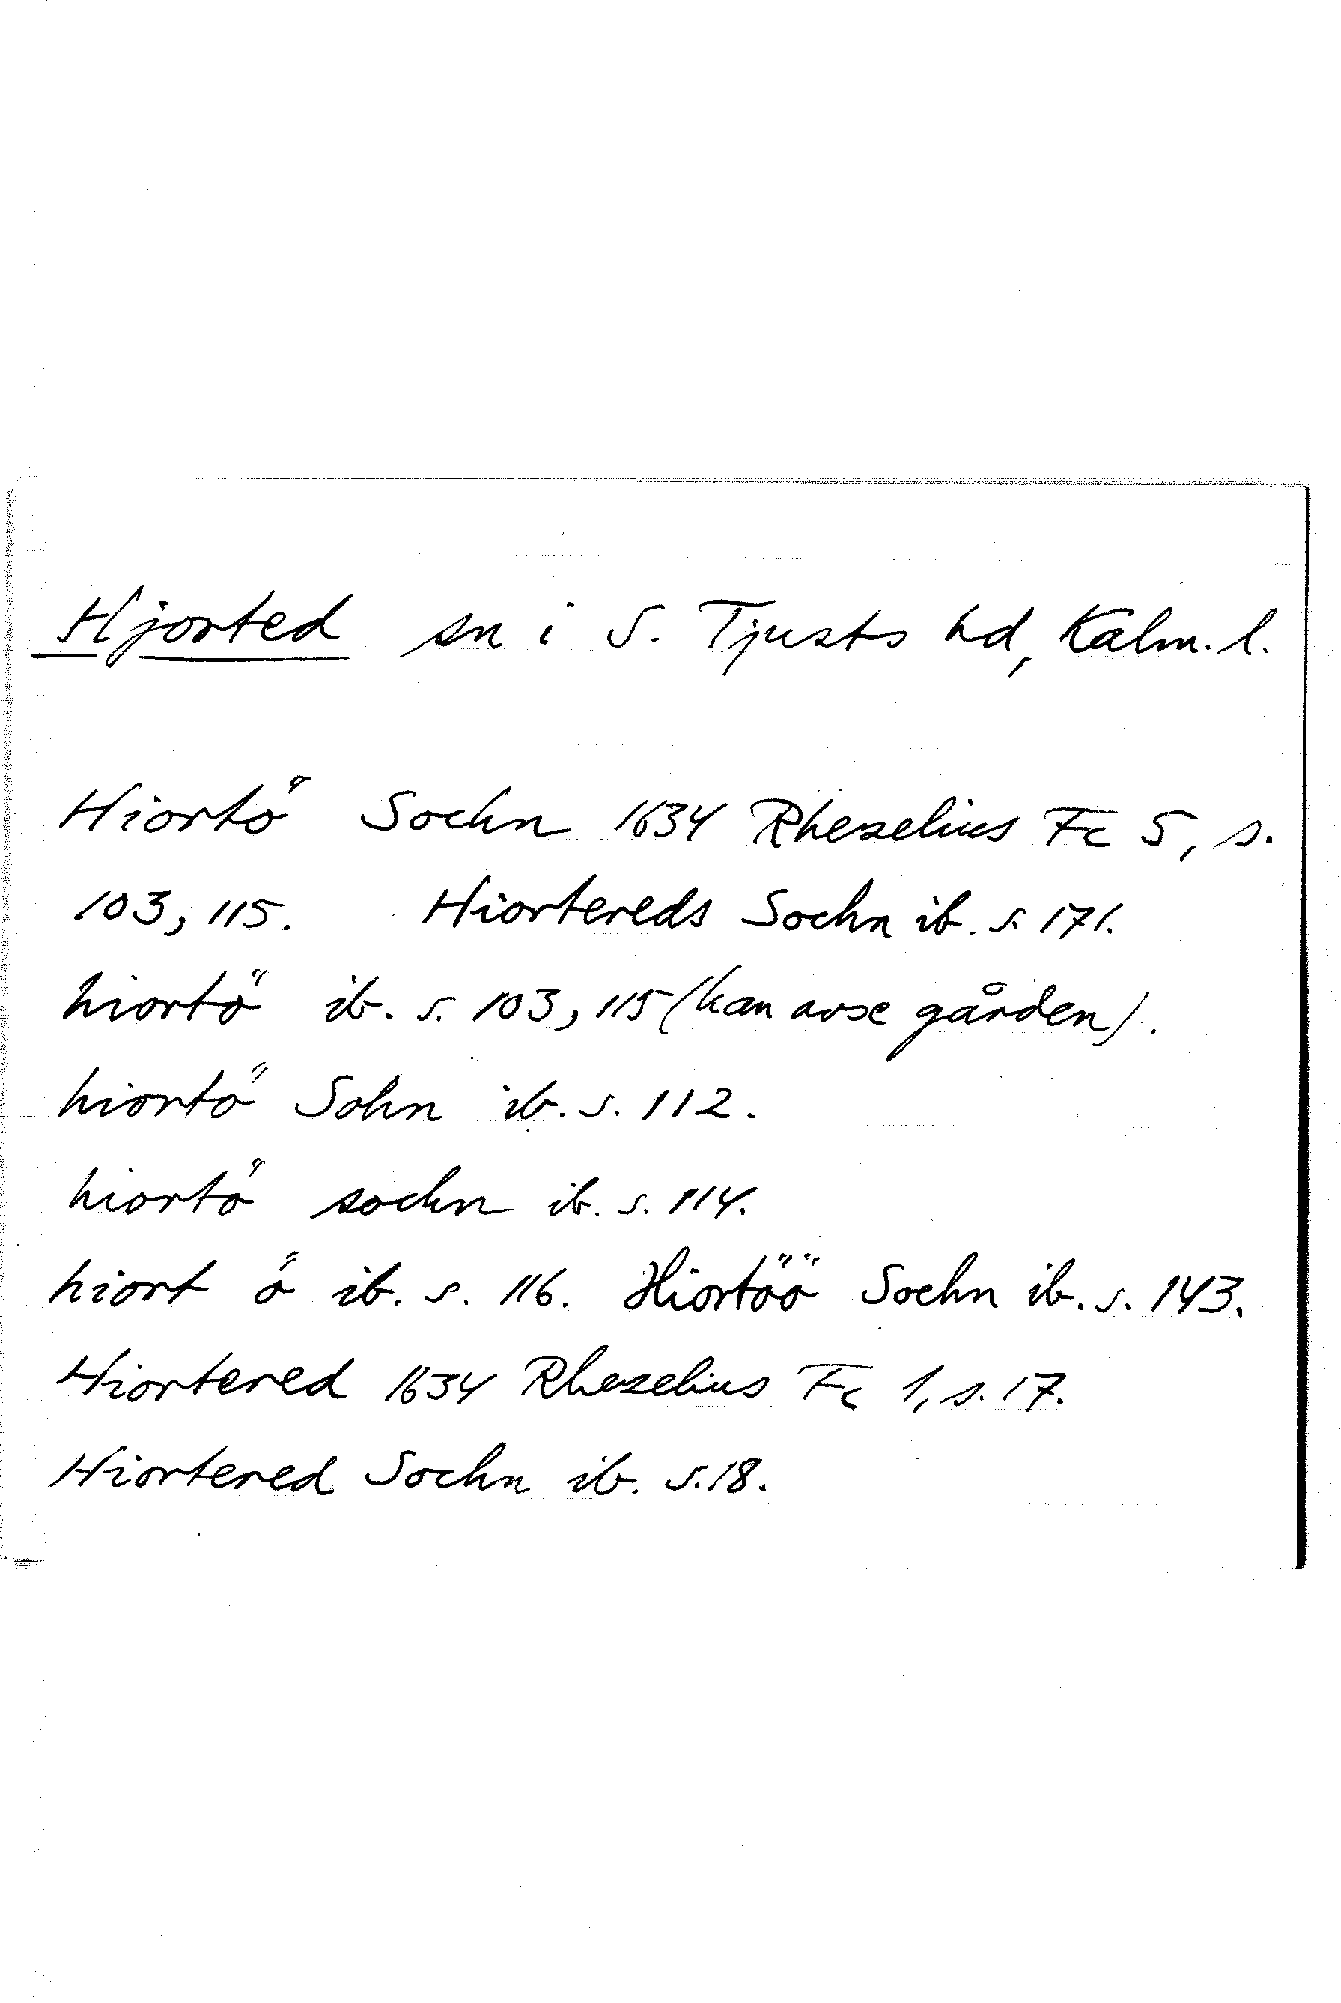 Hjorted sn i S. Tjusts hd, Kalm. l.
Hiortö Sochn 1634 Rhezelius Fc 5, s.
103, 115. Hiortereds Sochn ib. s. 171.
hiortö ib. s. 103, 115 (kan avse gården).
hiortö Sohn ib. s. 112.
hiortö sochn ib. s. 114.
hiort ö ib. s. 116. Hiortöö Sochn ib. s. 143.
Hiortered 1634 Rhezelius Fc 1, s. 17.
Hiortered Sochn ib. s. 18.